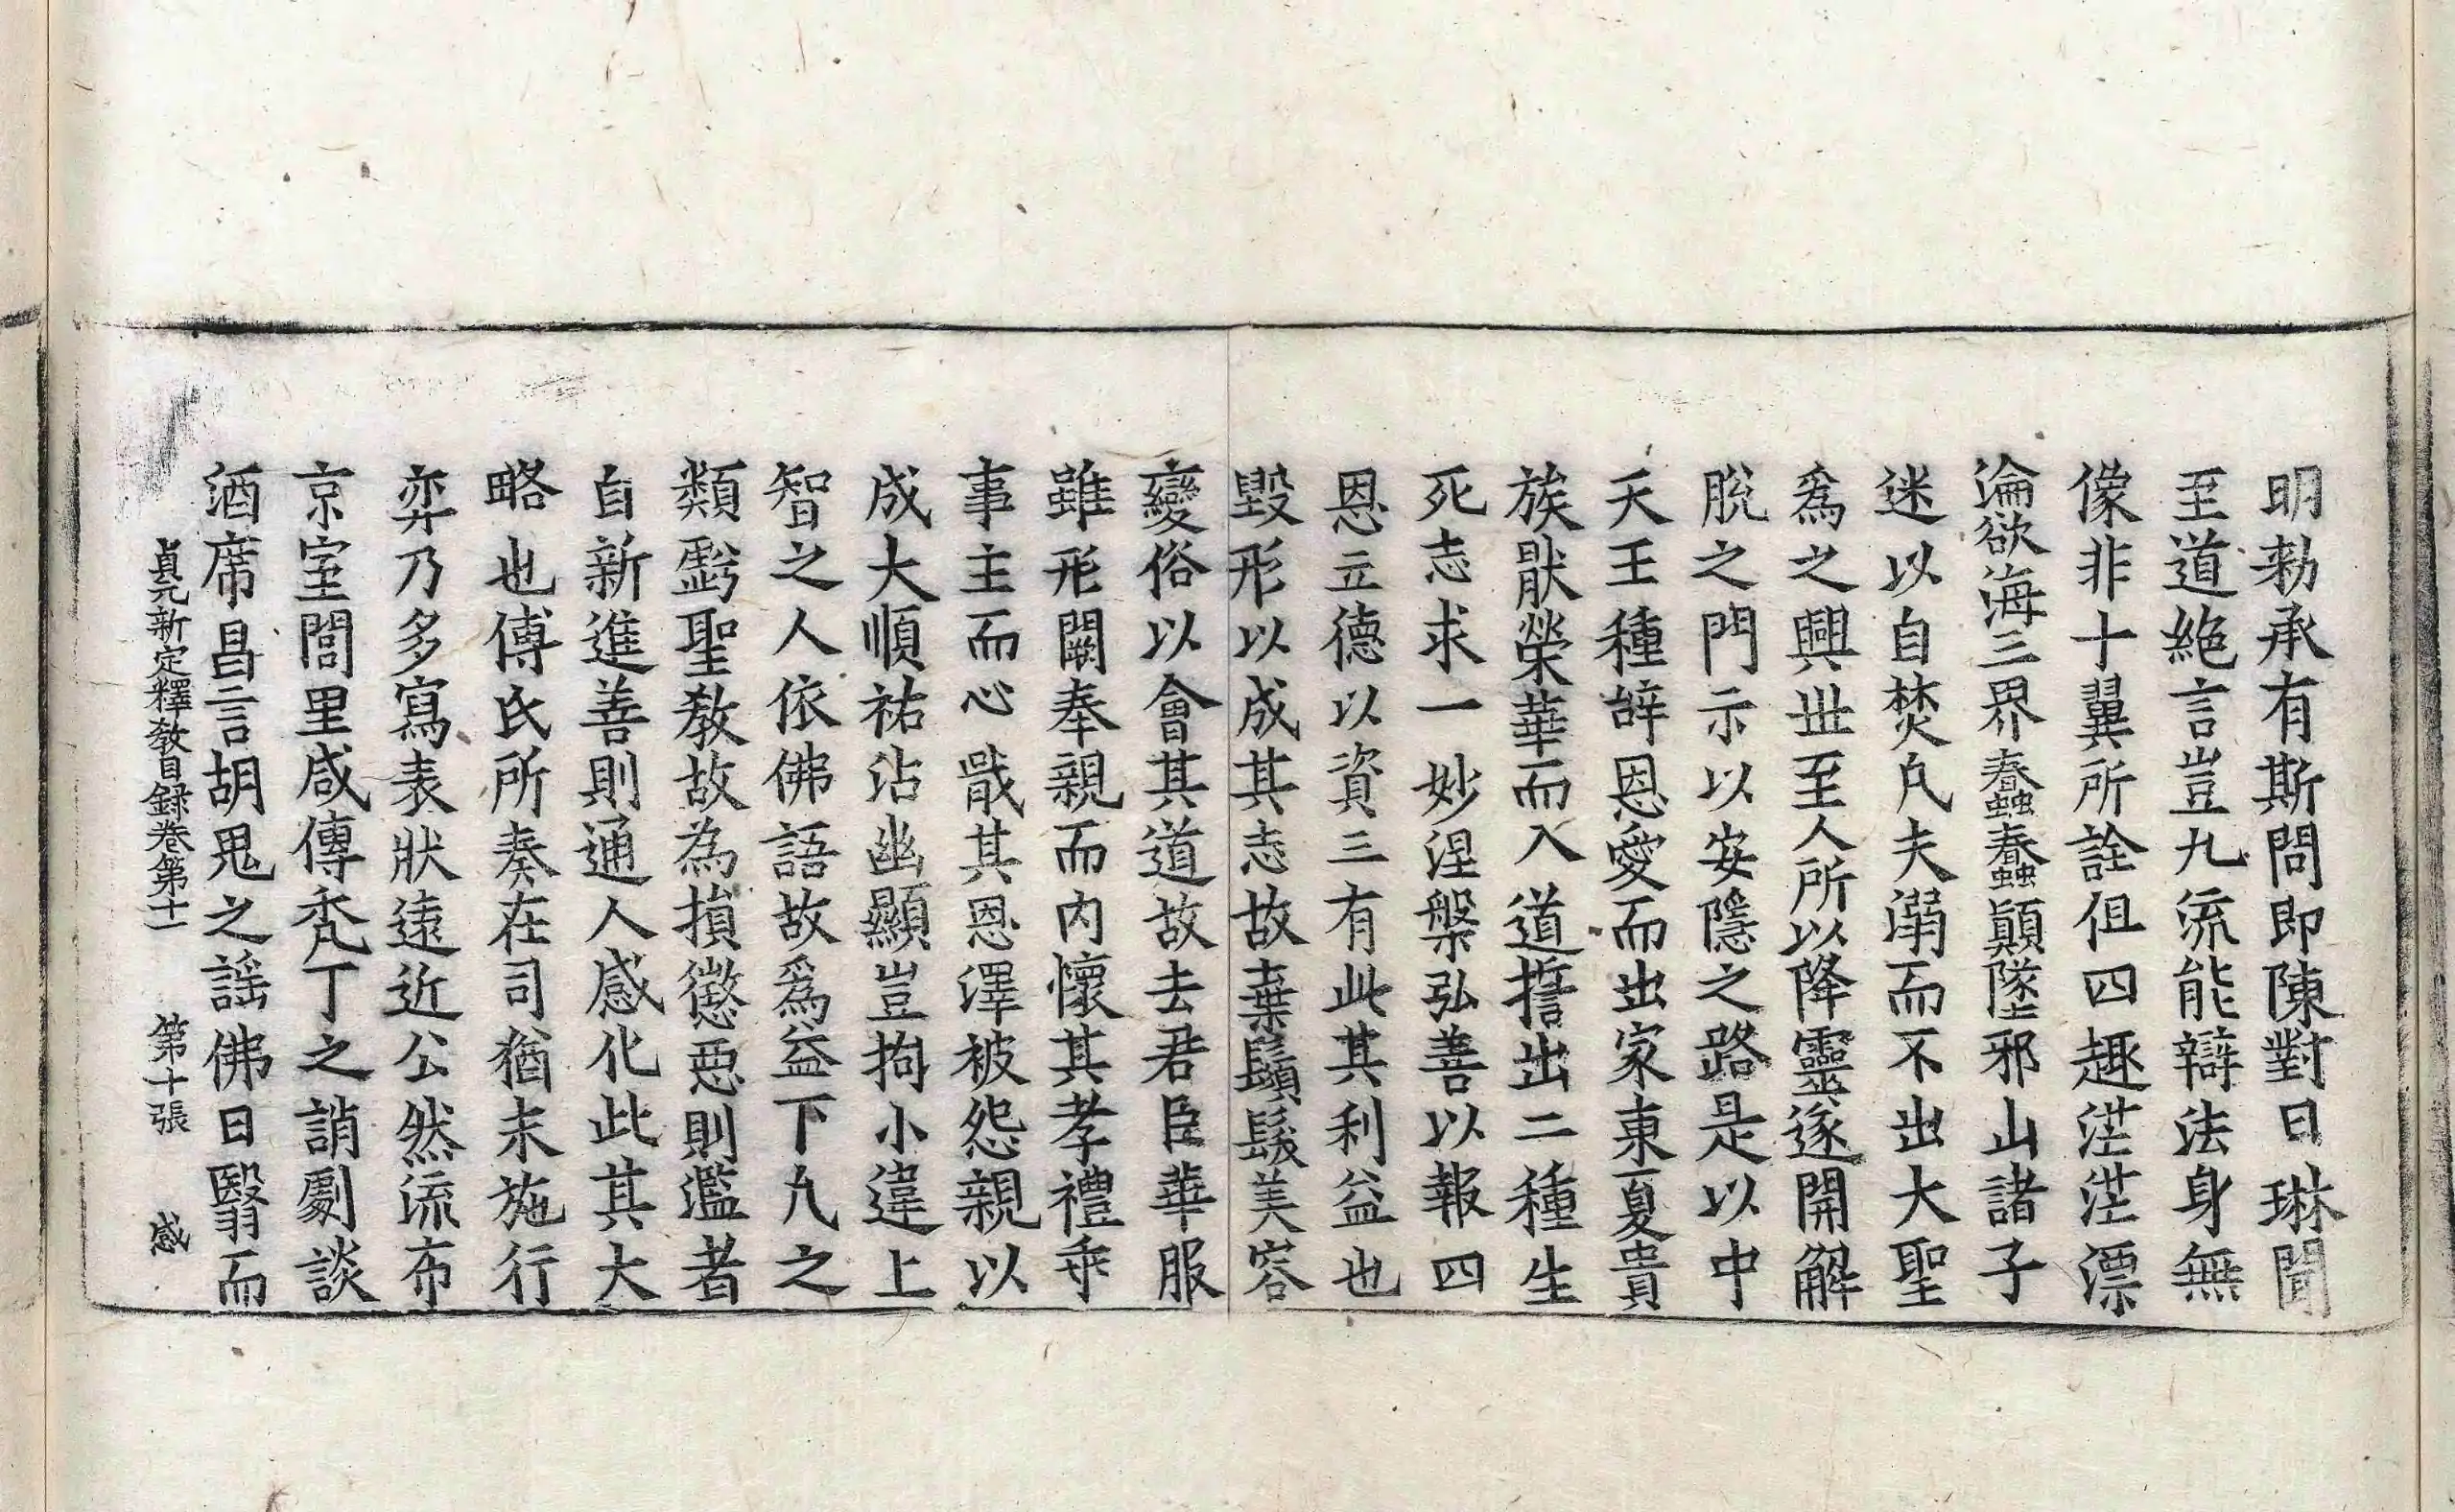 明勑承有斯問即陳對曰琳聞
至道絶言豈九流能辯法身無
像非十翼所詮但四趣茫茫漂
淪欲海三界蠢蠢顛墜邪山諸子
迷以自焚凡夫溺而不出大聖
爲之興世至人所以降靈遂開解
脫之門示以安隱之路是以中
天王種辭恩愛而出家東夏貴
族猒榮華而入道誓出二種生
死志求一妙涅槃弘善以報四
恩立德以資三有此其利益也
毀形以成其志故棄鬚髮美容
變俗以會其道故去君臣華服
雖形闕奉親而內懷其孝禮乖
事主而心戢其恩澤被怨親以
成大順祐沾幽顯豈拘小違上
智之人依佛語故爲益下凡之
類虧聖教故為損懲惡則濫者
自新進善則通人感化此其大
略也傅氏所奏在司猶未施行
弈乃多寫表狀遠近公然流布
京室閭里咸傳禿丁之誚劇談
酒席昌言胡鬼之謠佛日翳而
貞元新定釋教目録卷第十一 第十張 感